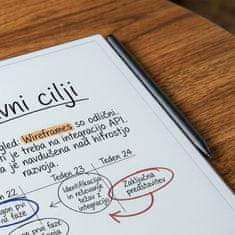 vni cilji
gled: Wireframes so odlični.
ti je treba na integracijo API.
a je navdušena nad hitrostjo
razvoja.
Teden 23
Teden 24
en 22
Identifikacija
in reševanje
težav z
integracijo
Zaključna
predstavitev
gon prvi
ni faze